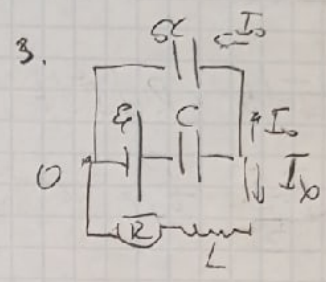 3.
6C I₀
ℰ C I₀
0 I₀
R L